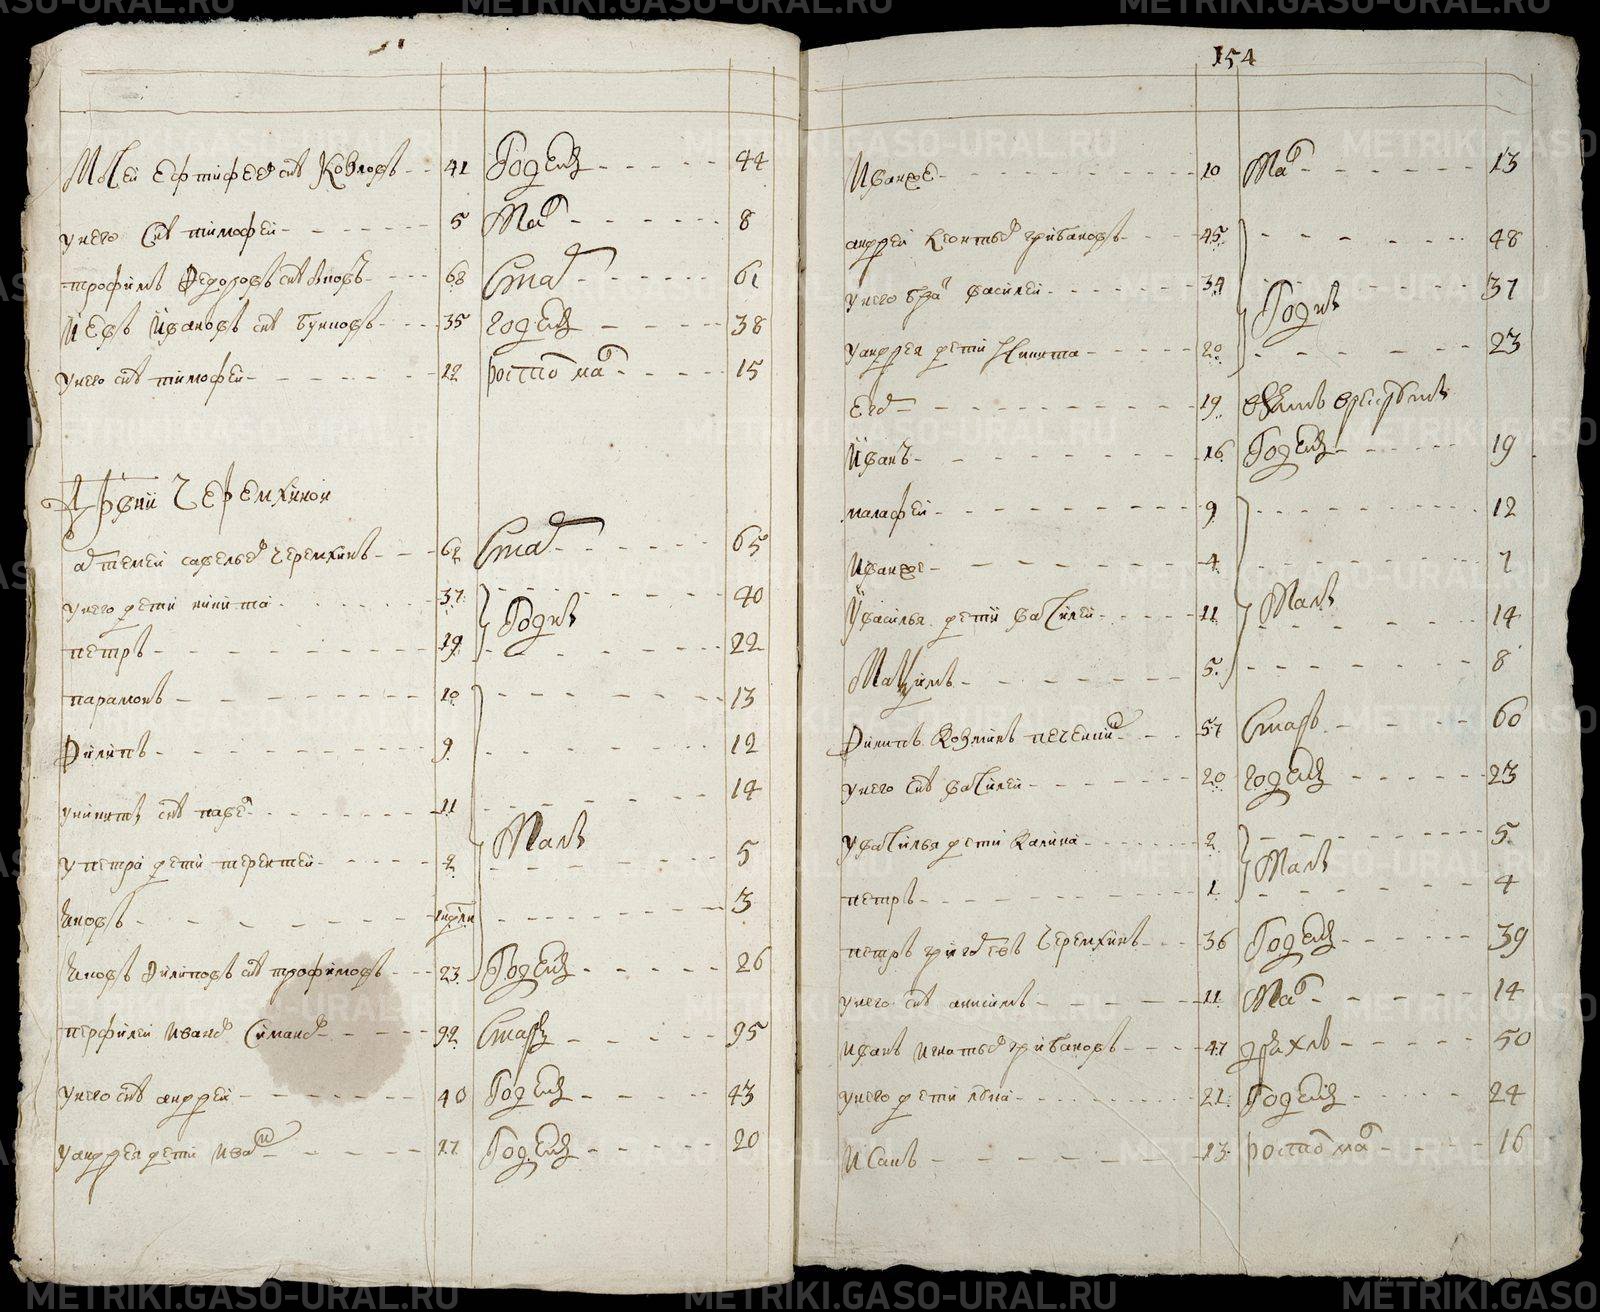 Моѵсей Ефтифеев снъ Козловъ 41 Годенъ 44
у него снъ тимофей 5 Мал 8
трофимъ Федоровъ снъ 68 Стар 61
Иевъ Ивановъ снъ Буиновъ 35 годенъ 38
у него снъ тимофей 12 ростом мал 15
Дрвни Черемхиной
артемей савельев черемхинъ 62 Стар 65
у него дети никита 37 Годны 40
петръ 19 22
парамонъ 10 13
Филипъ 9 12
у никиты снъ павел 11 Малы 14
у петра дети терентей 2 5
Яковъ 3
Яковъ Филиповъ снъ трофимовъ 23 Годенъ 26
перфилей Иванов Симанов 92 Старъ 95
у него снъ андрей 40 Годенъ 43
у андрея дети Иван 17 Годенъ 20
154
Иван же 10 Мал 13
андрей Леонтьев грибановъ 45 48
у него брат василей 34 Годны 37
у андрея дети Никита 20 23
егор 19
Иванъ 16 Годенъ 19
малафей 9 12
Иван же 4 7
У василья дети василей 11 Малы 14
Максимъ 5 8
Филипъ Козминъ печеник 57 Старъ 60
у него снъ василей 20 годенъ 23
у василья дети Калина 2 Малы 5
петръ 1 4
петръ григорьевъ Черемхинъ 36 Годенъ 39
у него снъ анисимъ 11 Мал 14
Иванъ Игнатьев грибановъ 47 дряхлъ 50
у него дети лука 21 Годенъ 24
Исакъ 13 ростом мал 16
METRIKI.GASO-URAL.RU